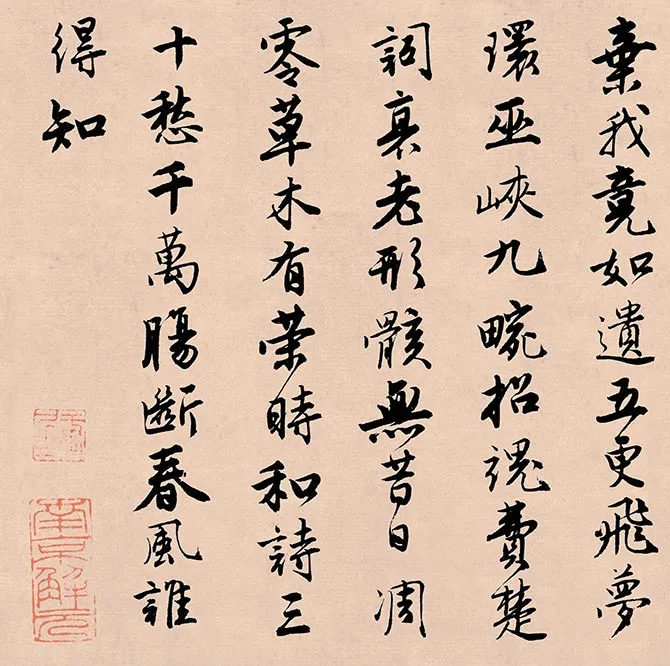 棄我竟如遺五更飛夢
環巫峽九畹招魂費楚
詞衰老形骸無昔日凋
零草木有荣時和詩三
十愁千萬腸斷春風誰
得知
南京解元